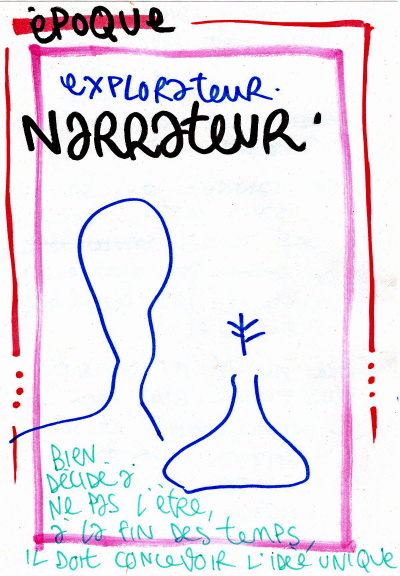 èPOQUE
EXPLORATEUR.
NARRATEUR.
BIEN.
DÉCIDÉ à.
NE PAS L'ÊTRE,
à LA FIN DES TEMPS,
IL DOIT CONCEVOIR L'IDÉE UNIQUE